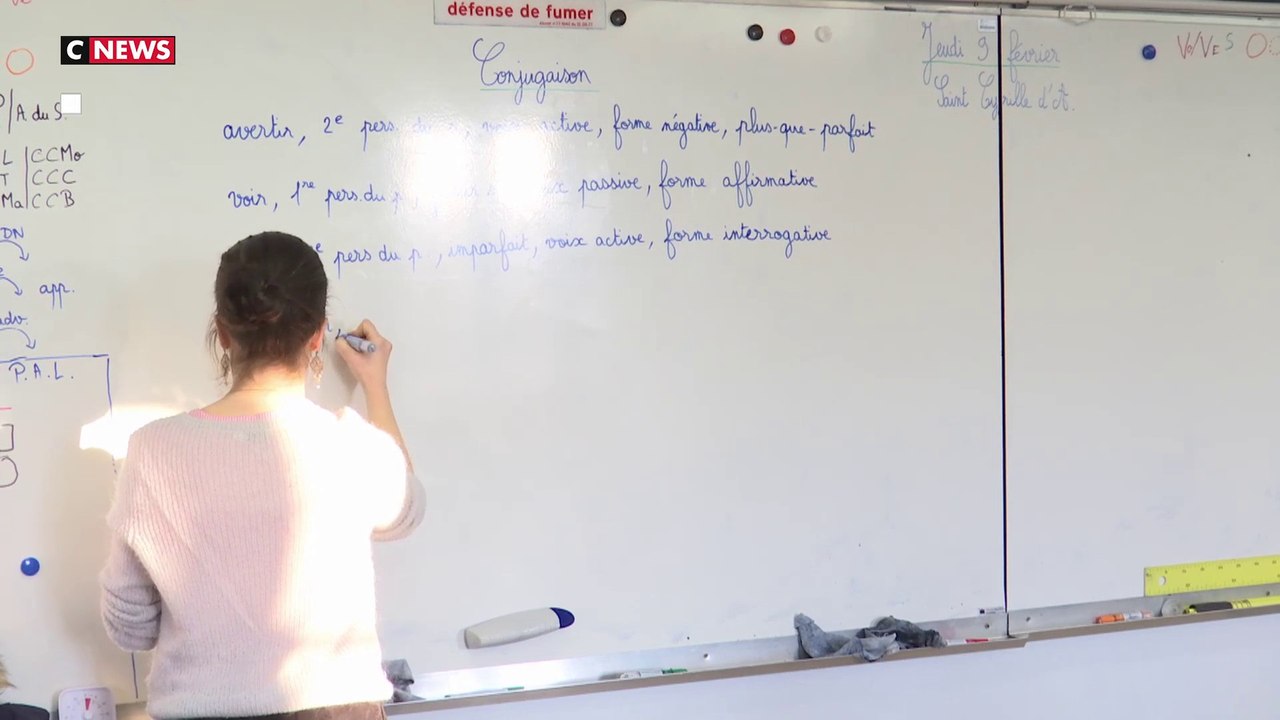 défense de fumer
CNEWS
Conjugaison
Jeudi 9 février
Saint Cyrille d'A.
Vo/VES
avertir, 2e pers. du active, forme négative, plus-que-parfait
voir, 1re pers. du p passive, forme affirmative
e pers du p , imparfait, voix active, forme interrogative
/A. du S.
L CCMo
T CCC
Ma CCB
DN
app.
adv.
P.A.L.